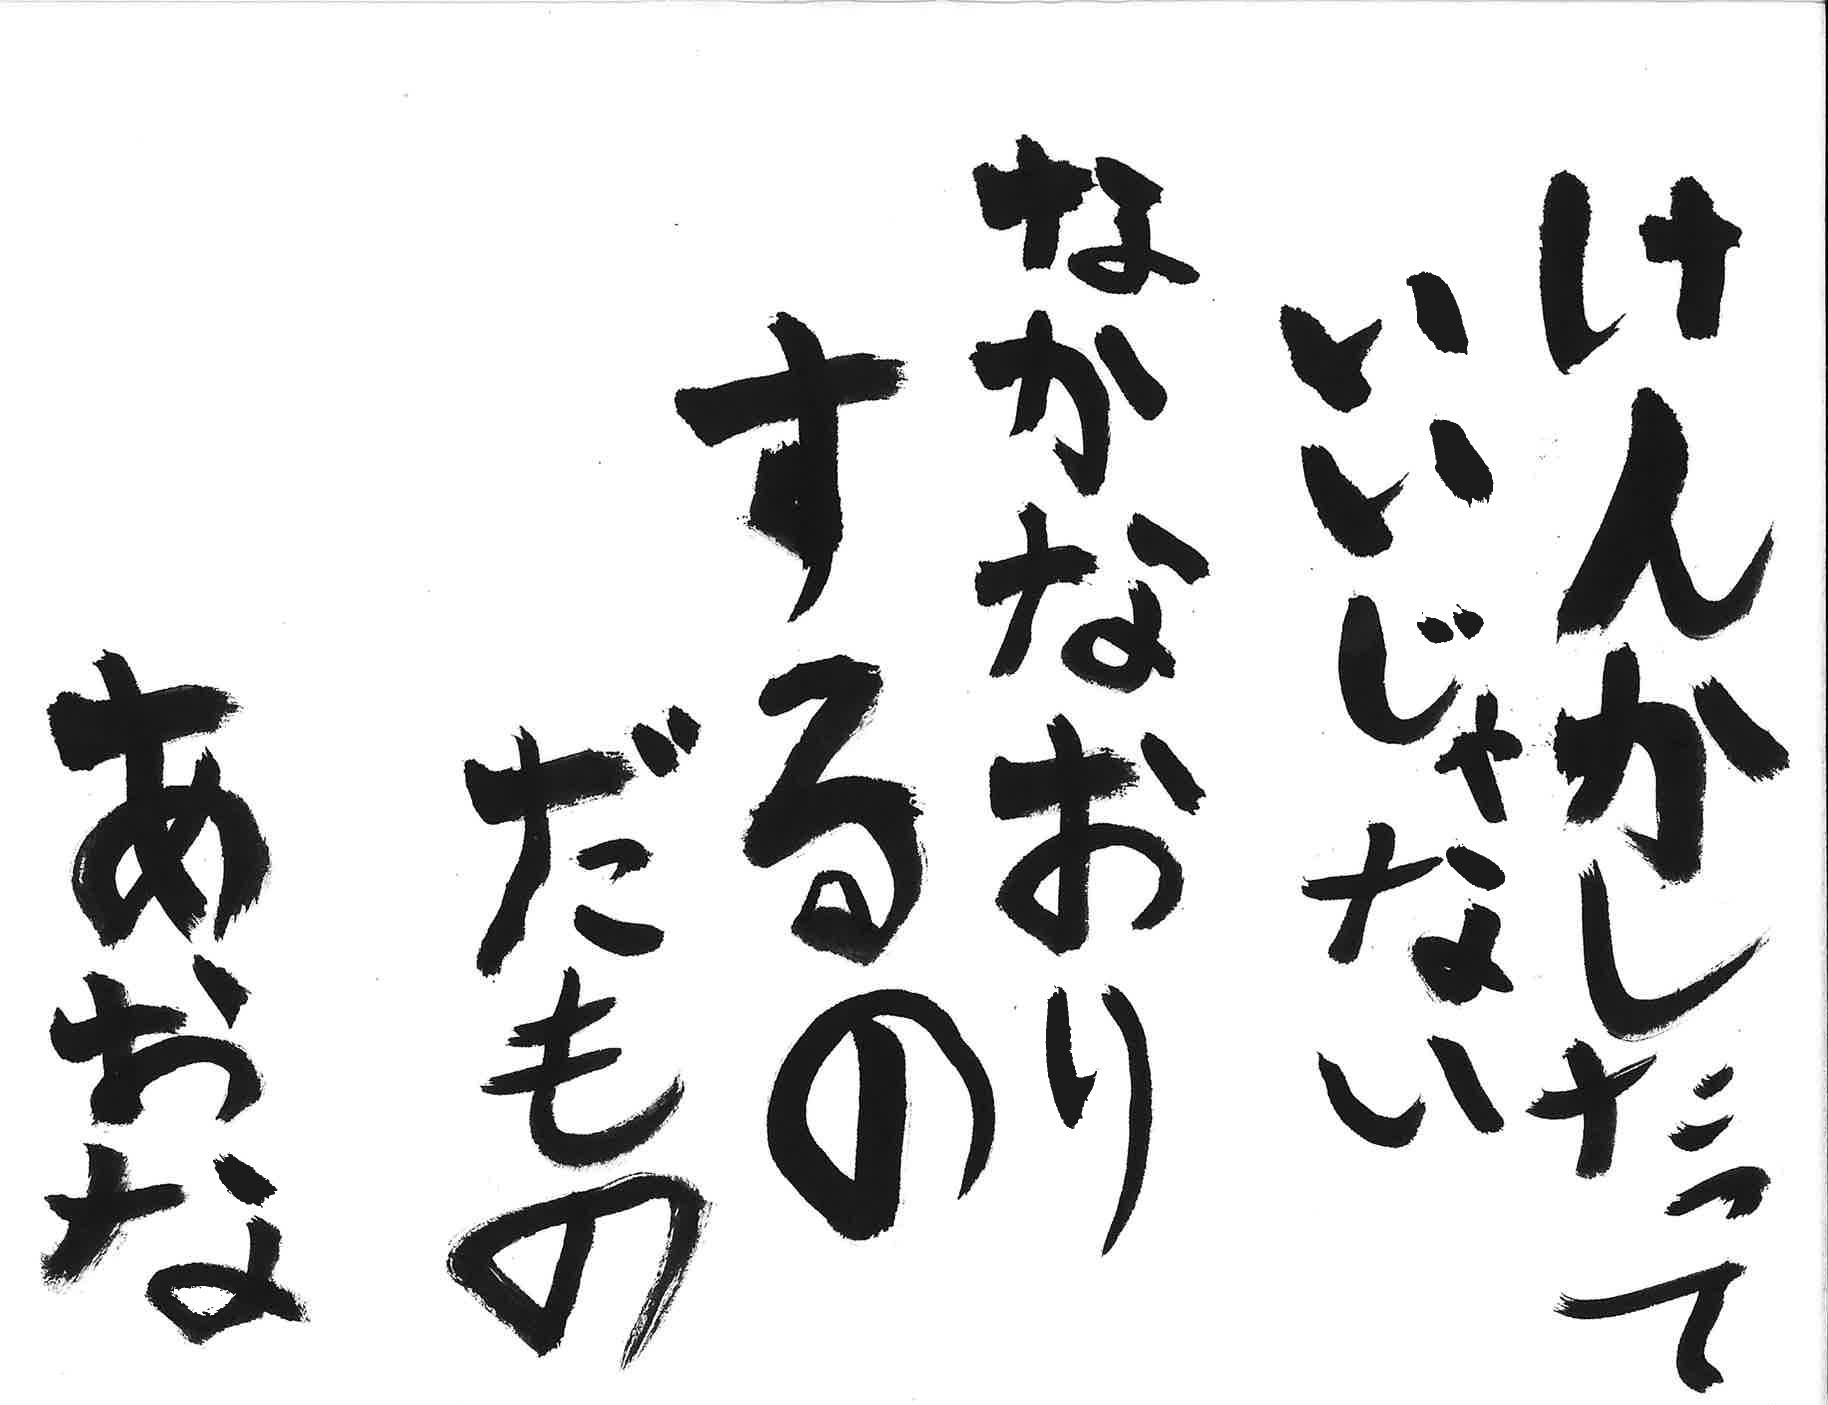 けんかしたって
いいじゃない
なかなおり
するの
だもの
あおな